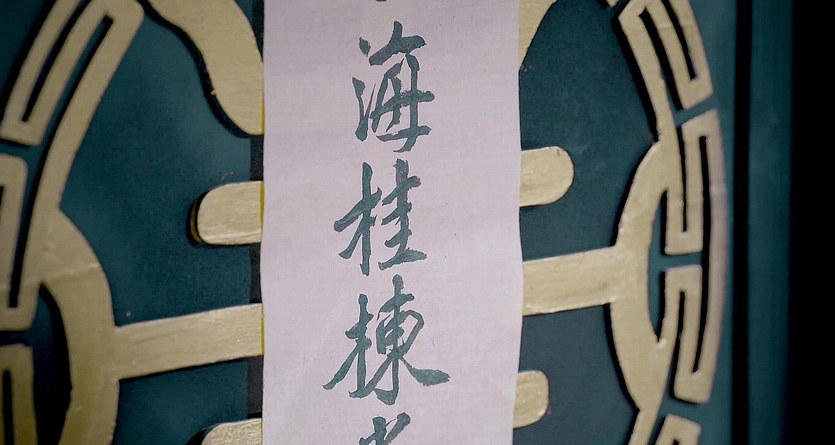 海桂棟